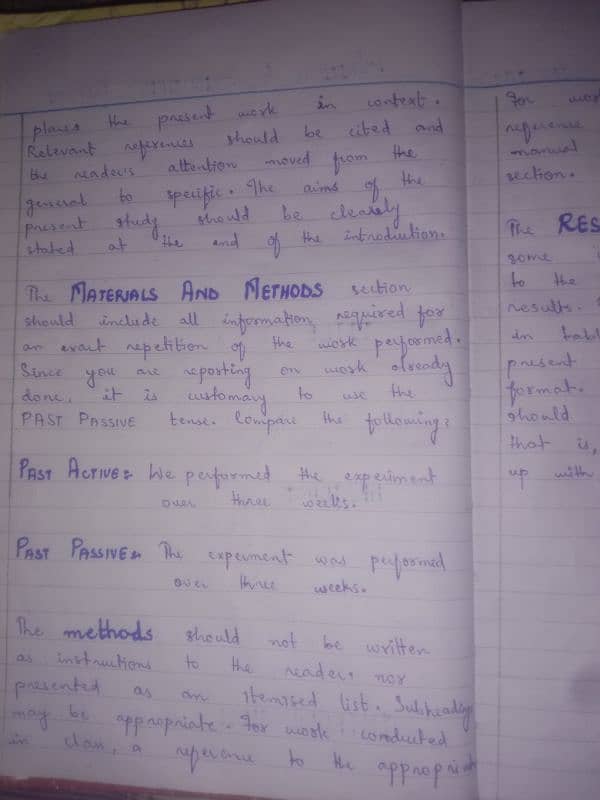 places the present work in context.
Relevant references should be cited and
the reader's attention moved from the
general to specific. The aims of the
present study should be clearly
stated at the end of the introduction.
The MATERIALS AND METHODS section
should include all information, required for
an exact repetition of the work performed.
Since you are reporting on work already
done, it is customary to use the
PAST PASSIVE tense. Compare the following:
PAST ACTIVE:- We performed the experiment
over three weeks.
PAST PASSIVE:- The experiment was performed
over three weeks.
The methods should not be written
as instructions to the reader, nor
presented as an itemised list. Subheading
may be appropriate. For work conducted
in class, a reference to the appropriat
For wor
reference
manual
section.
The RES
some
to the
results.
in tabl
present
format.
should
that is,
up with